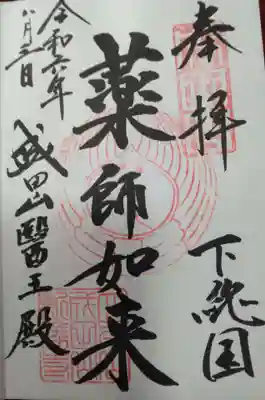 奉拝
下総国
薬師如来
令和六年
八月三日
成田山醫王殿